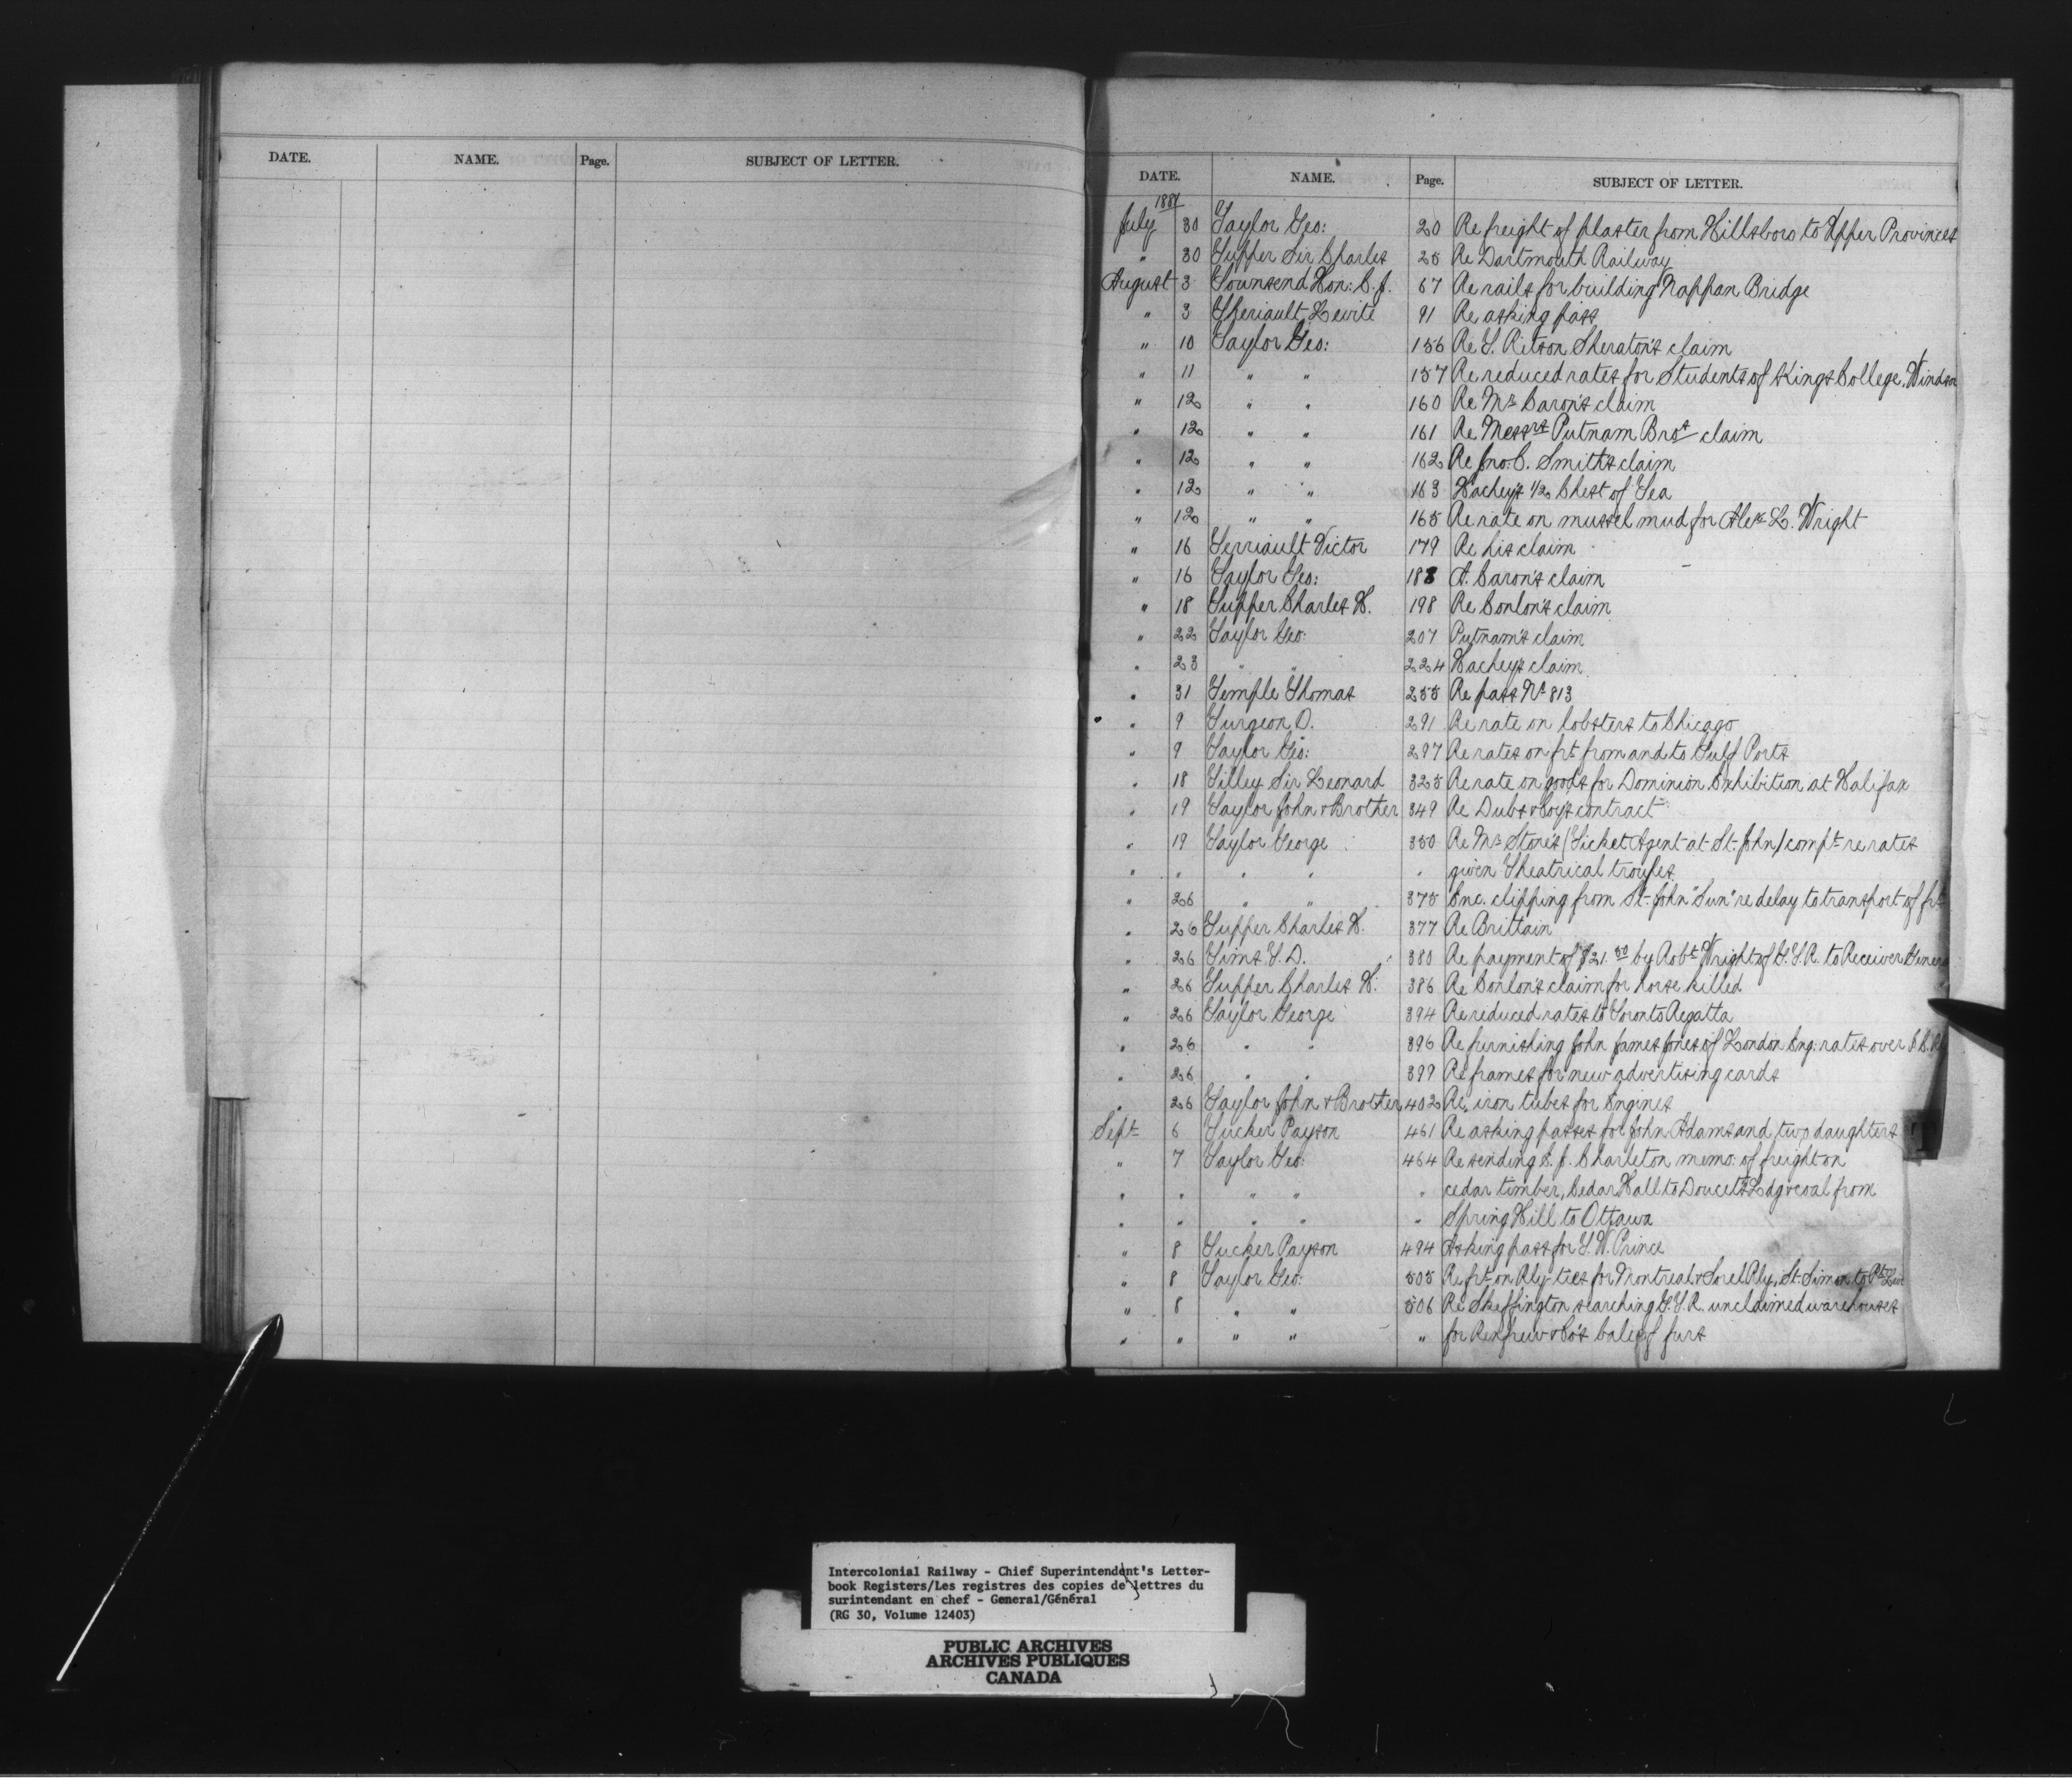 DATE. NAME. Page. SUBJECT OF LETTER.
DATE. NAME. Page. SUBJECT OF LETTER.
1881
July 30 Taylor Geo: 20 Re freight of plaster from Hillsboro to Upper Provinces
" 30 Tupper Sir Charles 25 Re Dartmouth Railway
August 3 Townsend Hon: C. J. 67 Re rails for building Nappan Bridge
" 3 Theriault Levite 91 Re asking pass
" 10 Taylor Geo: 156 Re T. Ritson Sheraton's claim
" 11 " " 157 Re reduced rates for Students of Kings College, Windsor
" 12 " " 160 Re Mr Caron's claim
" 12 " " 161 Re Messrs Putnam Bros claim
" 12 " " 162 Re Jno. C. Smith's claim
" 12 " " 163 Hachey's 1/2 Chest of Tea
" 12 " " 165 Re rate on mussel mud for Alex L. Wright
" 16 Terriault Victor 179 Re his claim
" 16 Taylor Geo: 188 A. Caron's claim
" 18 Tupper Charles H. 198 Re Conlon's claim
" 22 Taylor Geo: 207 Putnam's claim
" 23 " " 224 Hachey's claim
" 31 Temple Thomas 255 Re pass No 813
" 9 Turgeon O. 291 Re rate on lobsters to Chicago
" 9 Taylor Geo: 297 Re rates on frt from and to Gulf Ports
" 18 Tilley Sir Leonard 325 Re rate on goods for Dominion Exhibition at Halifax
" 19 Taylor John & Brother 349 Re Dubs & Coy's contract
" 19 Taylor George 350 Re Mr Stone's (Ticket Agent at St. John) compt re rates
" " " " " given Theatrical troupes
" 26 " " 375 Enc. clipping from St. John "Sun" re delay to transport of frt
" 26 Tupper Charles H. 377 Re Brittain
" 26 Tims T. D. 380 Re payment of $21.50 by Robt Wright of G.T.R. to Receiver General
" 26 Tupper Charles H. 386 Re Conlon's claim for horse killed
" 26 Taylor George 394 Re reduced rates to Toronto Regatta
" 26 " " 396 Re furnishing John James Jones of London Eng: rates over
" 26 " " 399 Re frames for new advertising cards
" 26 Taylor John & Brother 402 Re iron tubes for Engines
Sept 6 Tucker Payson 461 Re asking passes for John Adams and two daughters
" 7 Taylor Geo: 464 Re sending J. Charleton memo: of freight on
" " " " " cedar timber, Cedar Hall to Doucet's Ldg & coal from
" " " " " Spring Hill to Ottawa
" 8 Tucker Payson 494 Asking pass for T. W. Prince
" 8 Taylor Geo: 505 Re frt on Rly ties for Montreal & Sorel Rly, St. Simon to Pt Levi
" 8 " " 506 Re Skeffington searching G.T.R. unclaimed warehouses
" " " " " for Renfrew & Co's bale of furs
Intercolonial Railway - Chief Superintendent's Letter-
book Registers/Les registres des copies de lettres du
surintendant en chef - General/Général
(RG 30, Volume 12403)
PUBLIC ARCHIVES
ARCHIVES PUBLIQUES
CANADA